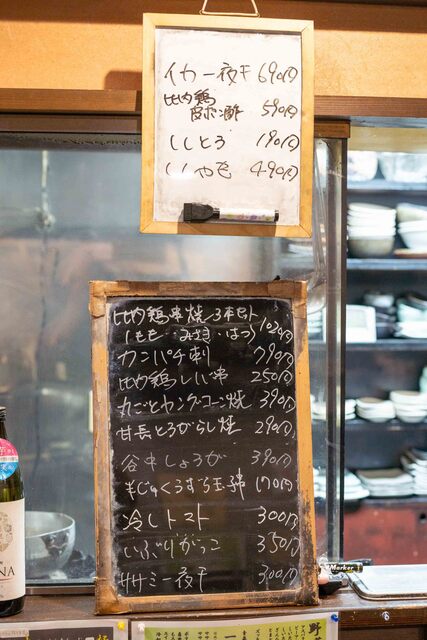 イカ一夜干 690円
比内鶏
皮ポン酢 590円
ししとう 190円
ししゃも 490円
比内鶏串焼3本セット
(もも・みさき・はつ) 1020円
カンパチ刺 790円
比内鶏レバ串 250円
丸ごとヤングコーン焼 390円
甘長とうがらし焼 290円
谷中しょうが 390円
半じゅくうずら玉子串 170円
冷しトマト 300円
いぶりがっこ 350円
ササミ一夜干 300円
Marker
NA